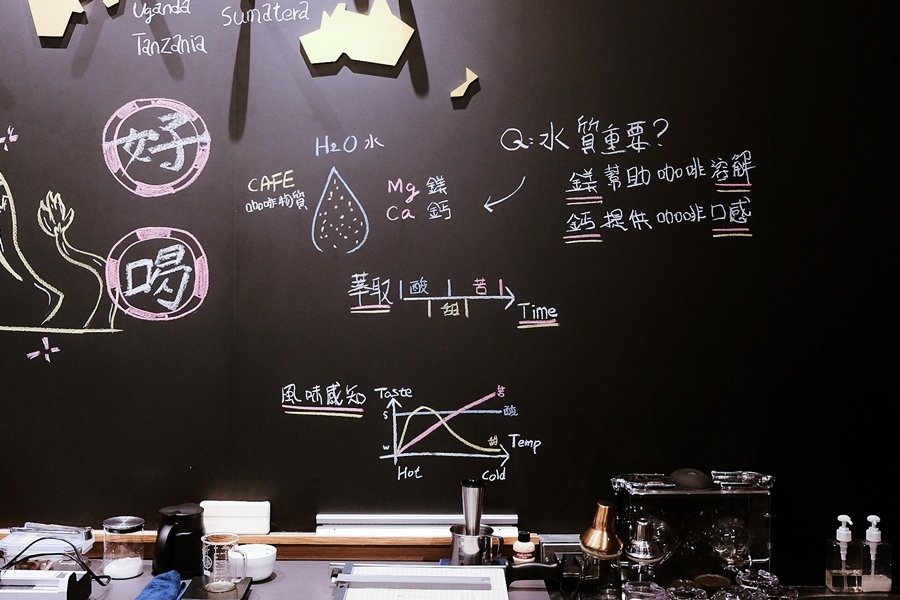 Uganda
Sumatera
Tanzania
好
喝
H2O 水
CAFE
咖啡物質
Mg 鎂
Ca 鈣
Q:水質重要?
鎂幫助咖啡溶解
鈣提供咖啡口感
萃取 酸 苦
甜
Time
風味感知
Taste
苦
S
酸
甜
W
Temp
Hot
Cold